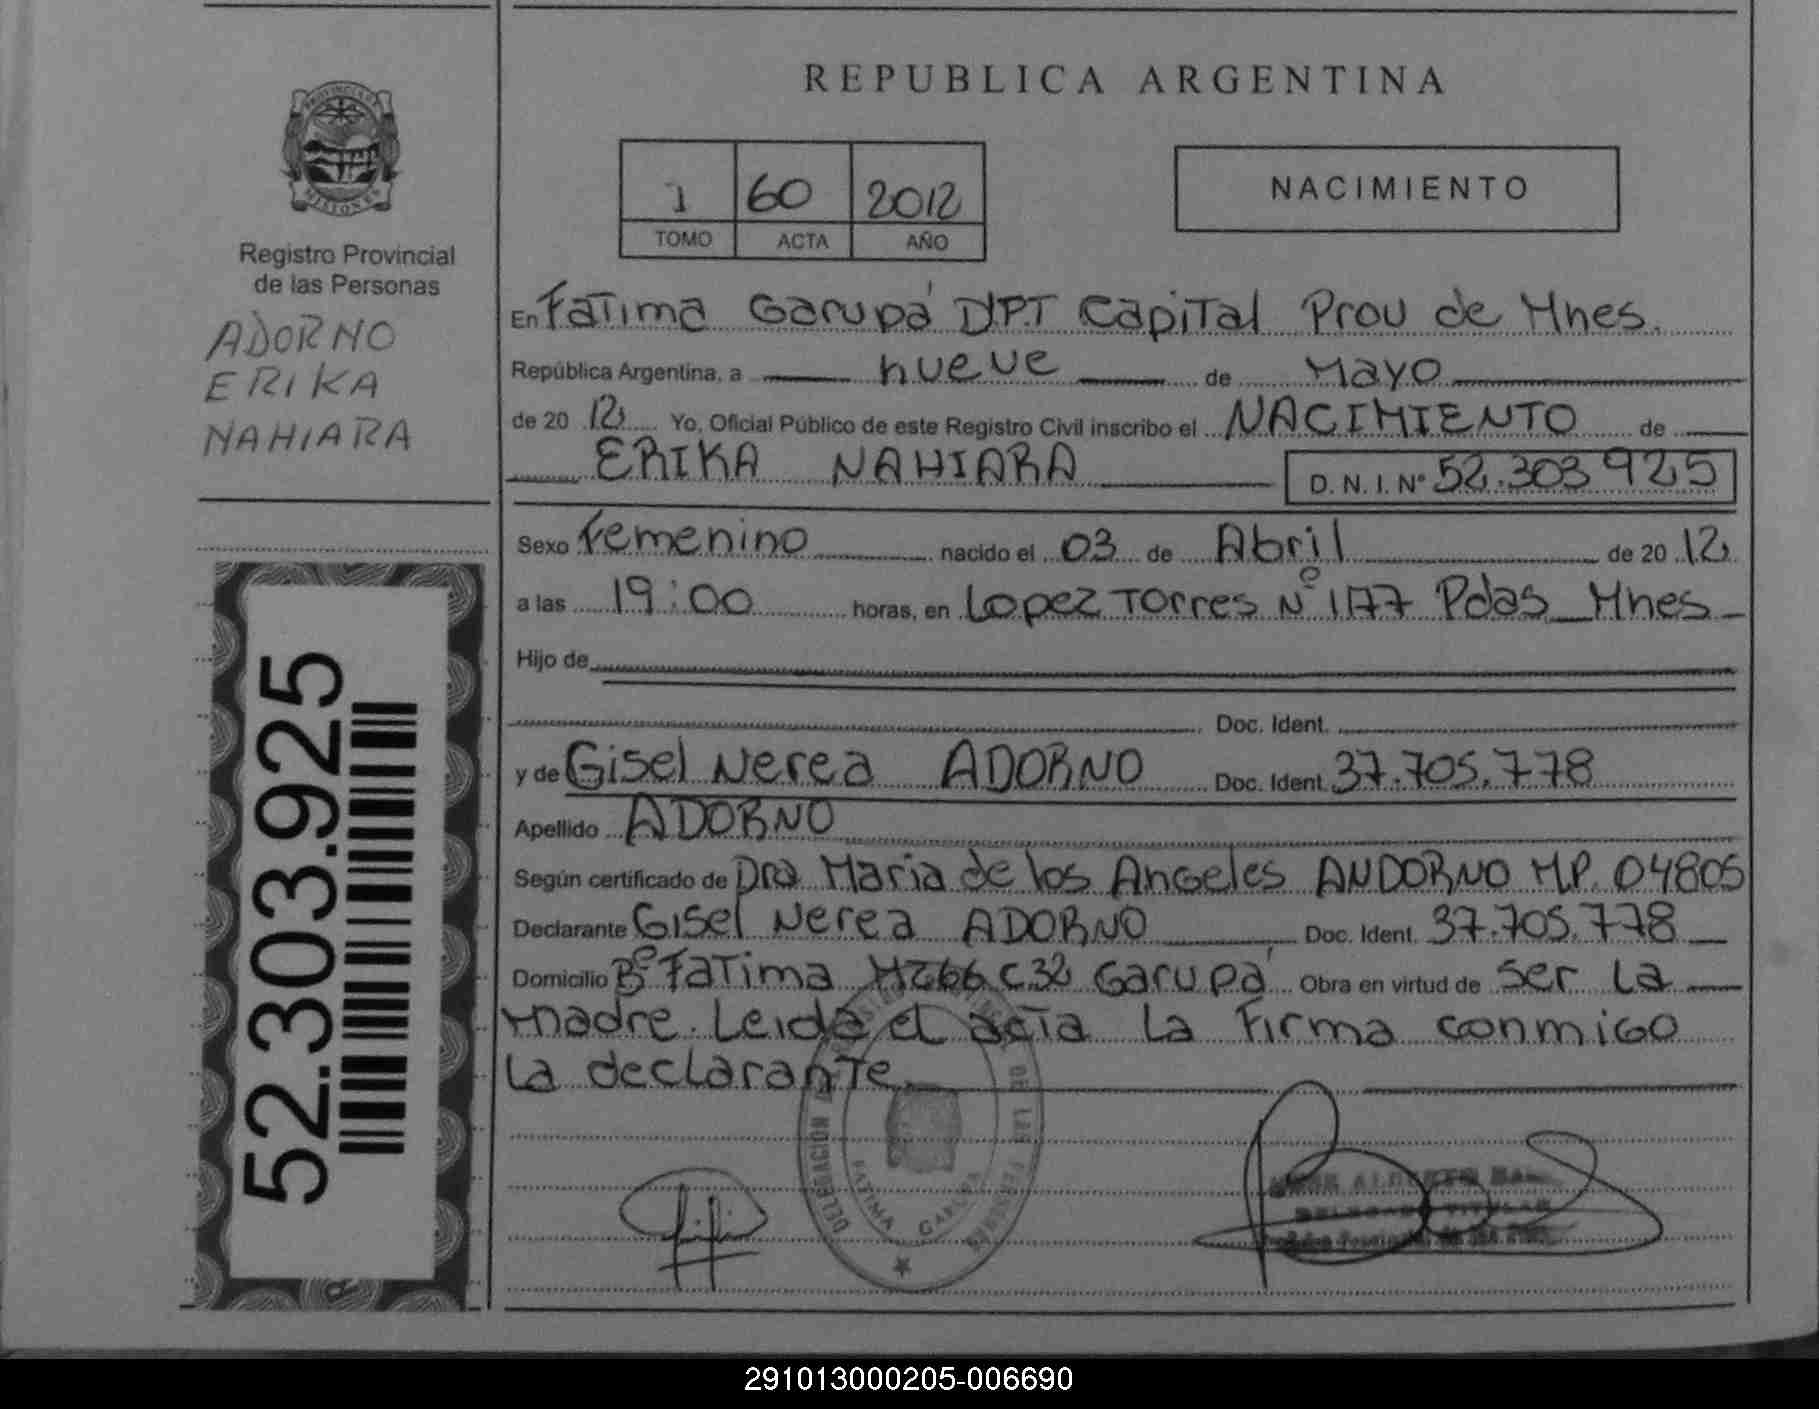 PROVINCIA DE
MISIONES
Registro Provincial
de las Personas
ADORNO
ERIKA
NAHIARA
52.303.925
REPUBLICA ARGENTINA
1 60 2012
TOMO ACTA AÑO
NACIMIENTO
En Fatima Garupá DPT Capital Prov de Mnes.
República Argentina, a nueve de Mayo
de 20 12 Yo, Oficial Público de este Registro Civil inscribo el NACIMIENTO de
ERIKA NAHIARA D. N. I. N° 52.303 925
Sexo Femenino nacido el 03 de Abril de 20 12
a las 19:00 horas, en Lopez Torres Nº 1177 Pdas Mnes
Hijo de
Doc. Ident.
y de Gisel Nerea ADORNO Doc. Ident. 37.705.778
Apellido ADORNO
Según certificado de Dra Maria de los Angeles ANDORNO M.P. 04805
Declarante Gisel Nerea ADORNO Doc. Ident. 37.705.778
Domicilio Bº Fatima MZ66 C32 Garupá Obra en virtud de ser la
madre. Leida el acta la firma conmigo
la declarante
DELEGACIÓN DE LAS PERSONAS
FATIMA GARUPA
DELEGADO TITULAR
291013000205-006690